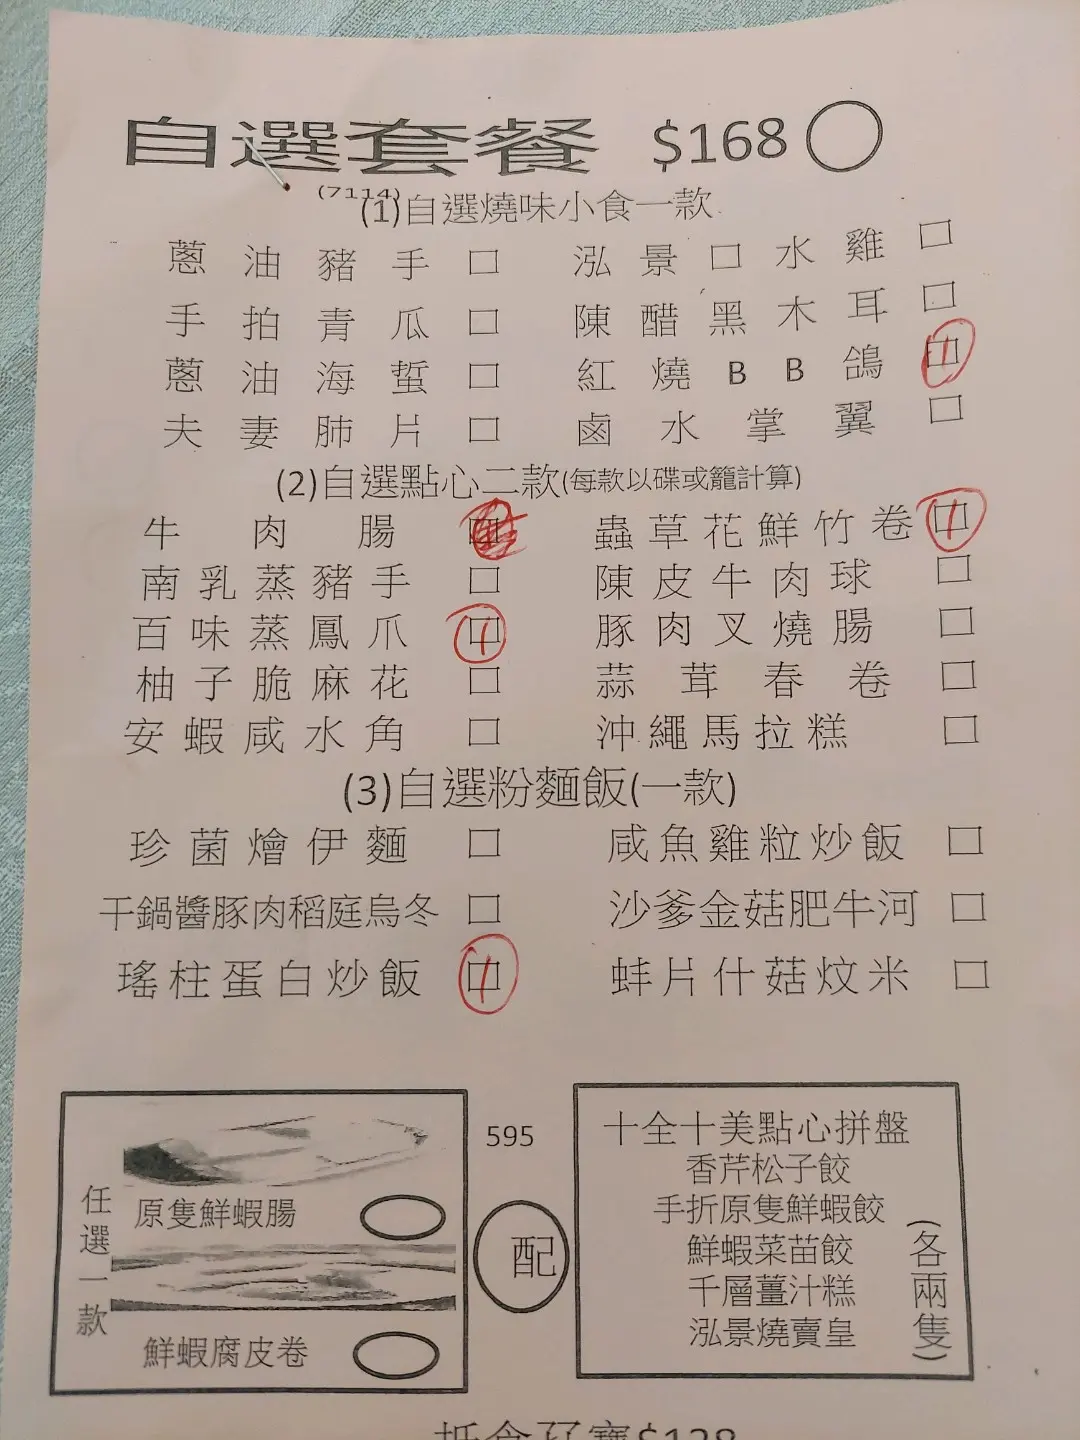 自選套餐 $168
(7114)
(1)自選燒味小食一款
蔥油豬手 □ 泓景口水雞 □
手拍青瓜 □ 陳醋黑木耳 □
蔥油海蜇 □ 紅燒BB鴿 □ 1
夫妻肺片 □ 鹵水掌翼 □
(2)自選點心二款(每款以碟或籠計算)
牛肉腸 □ 蟲草花鮮竹卷 □ 1
南乳蒸豬手 □ 陳皮牛肉球 □
百味蒸鳳爪 □ 1 豚肉叉燒腸 □
柚子脆麻花 □ 蒜茸春卷 □
安蝦咸水角 □ 沖繩馬拉糕 □
(3)自選粉麵飯(一款)
珍菌燴伊麵 □ 咸魚雞粒炒飯 □
干鍋醬豚肉稻庭烏冬 □ 沙爹金菇肥牛河 □
瑤柱蛋白炒飯 □ 1 蚌片什菇炆米 □
任選一款
原隻鮮蝦腸
鮮蝦腐皮卷
595
配
十全十美點心拼盤
香芹松子餃
手折原隻鮮蝦餃
鮮蝦菜苗餃
千層薑汁糕
泓景燒賣皇
(各兩隻)
$128